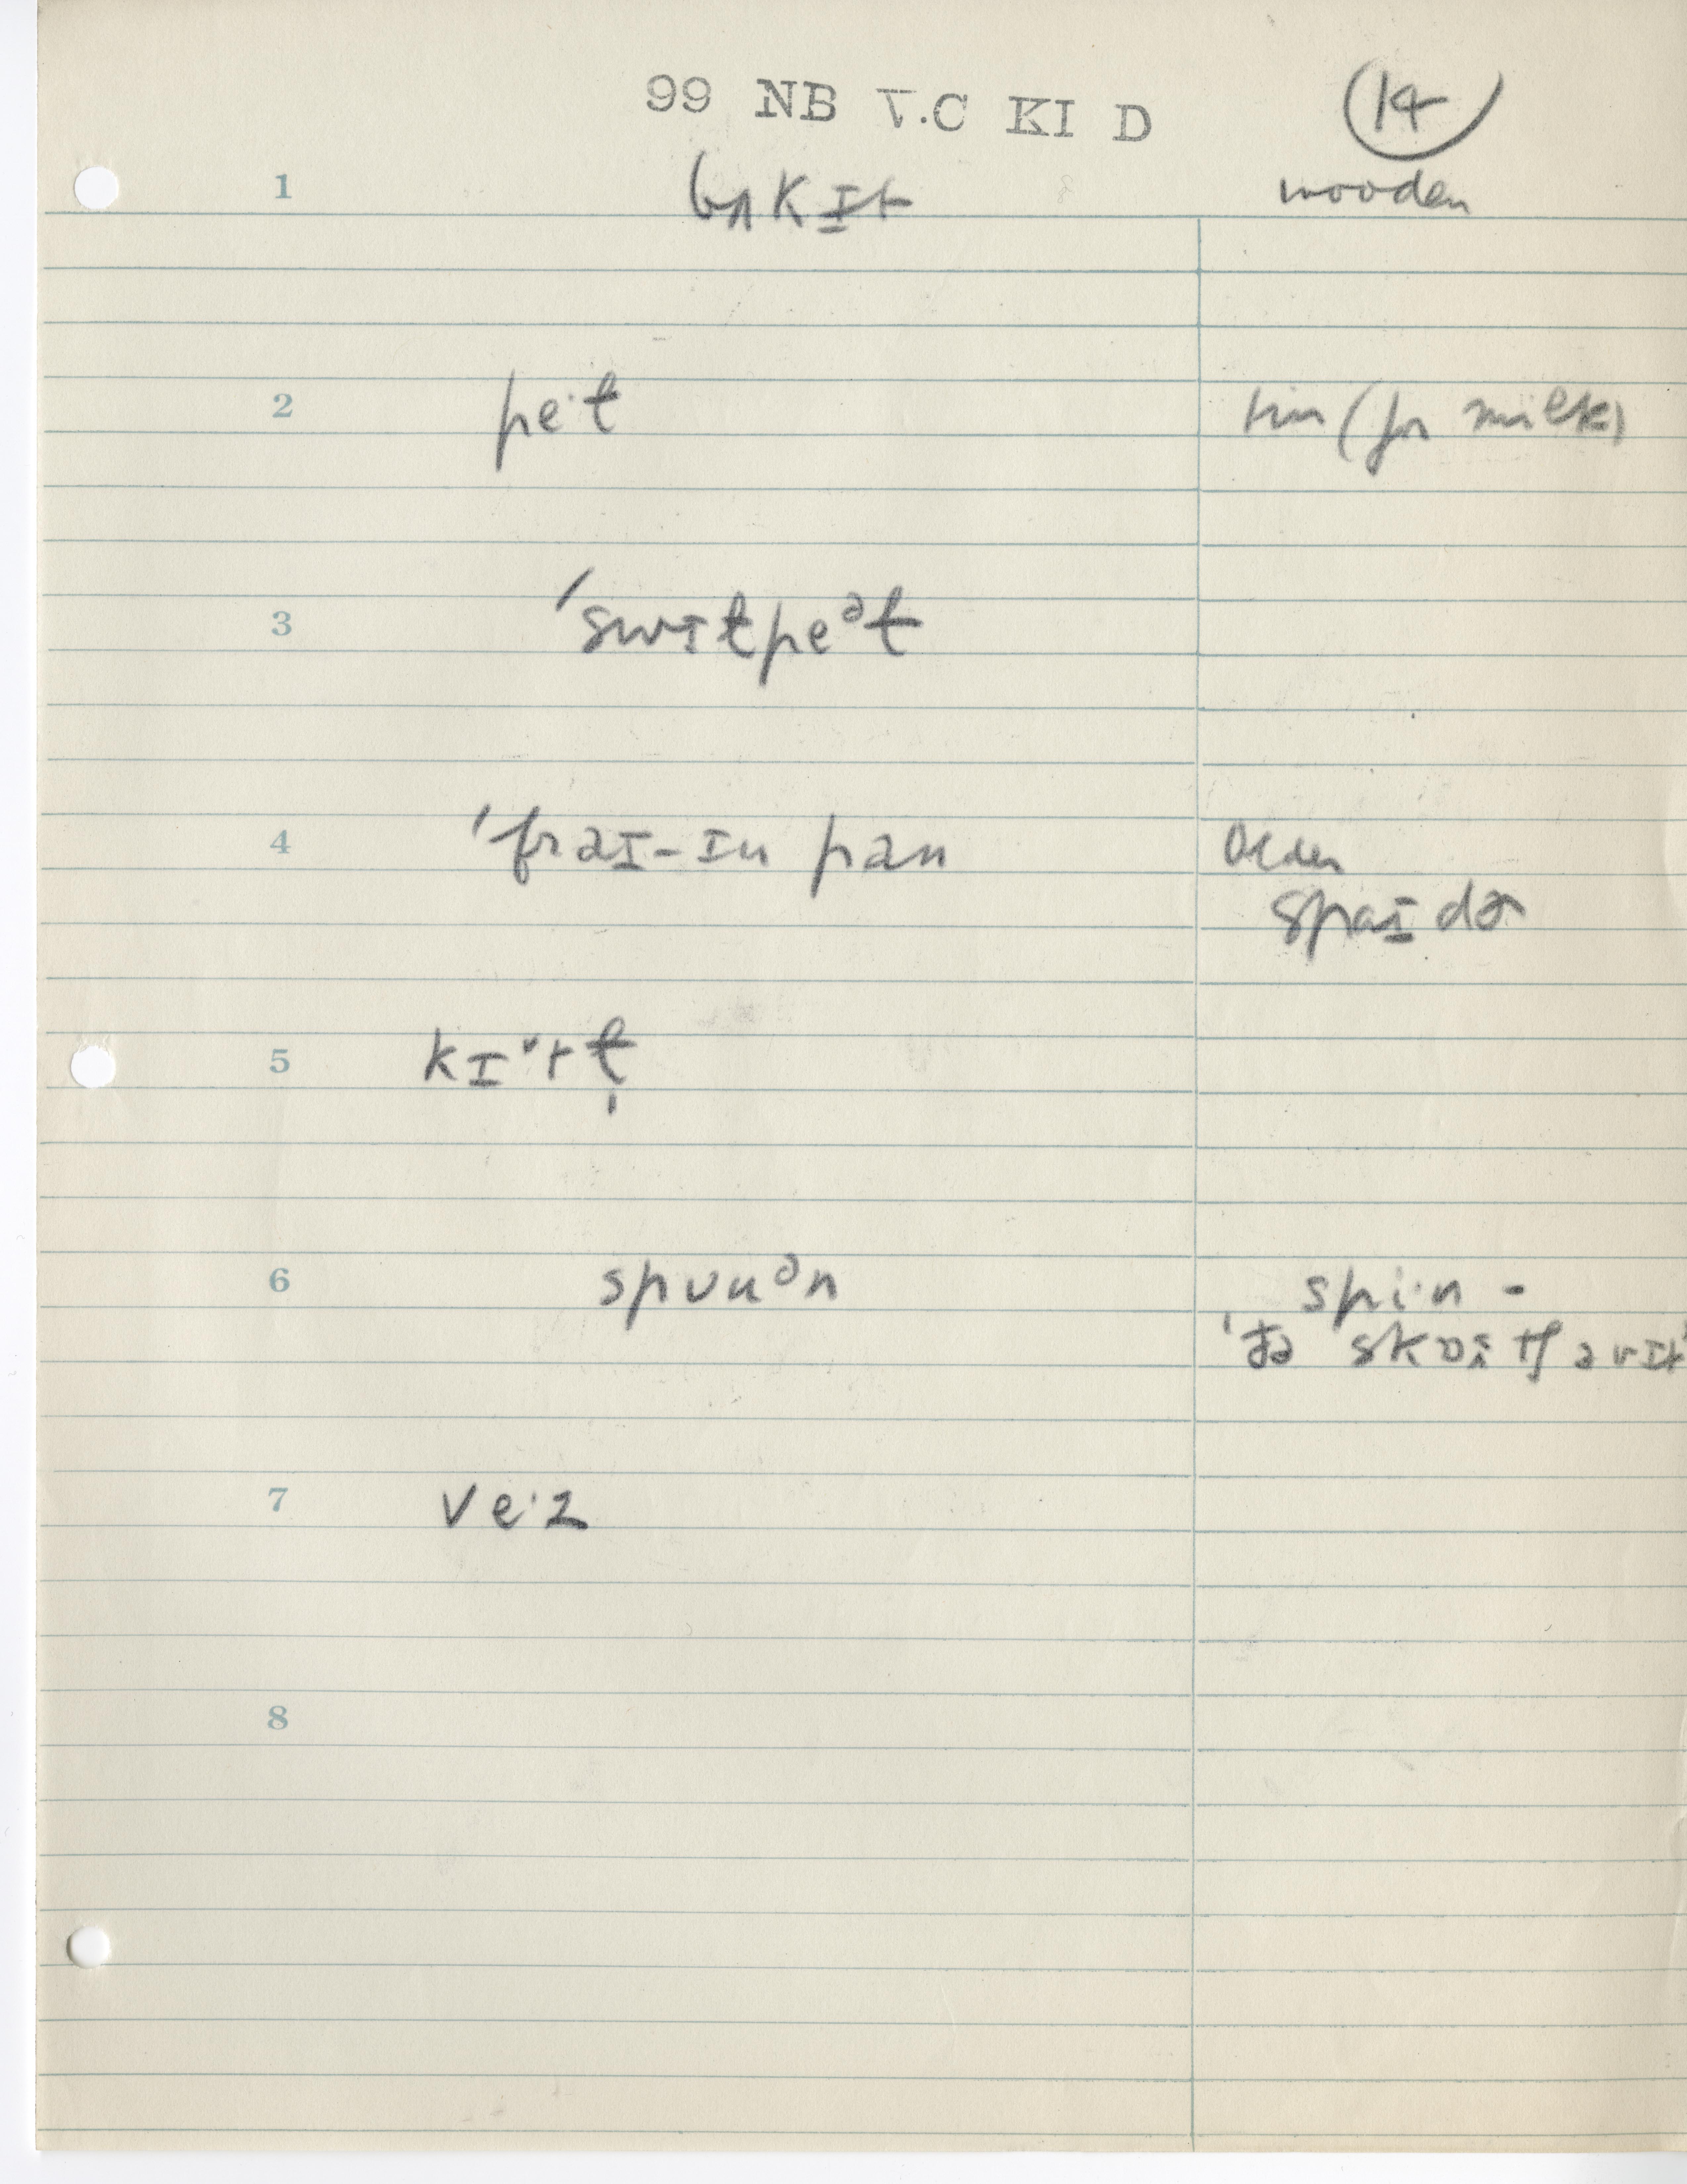 99 NB V.C KI D
14
1 bʌkɪt wooden
2 pe·ɫ tin (for milk)
3 ˈswɪɫpeᵊɫ
4 ˈfraɪ-ɪn pan Older
spaɪdɚ
5 kɪ
6 spuᵊn spi·n -
7 ve·z
8